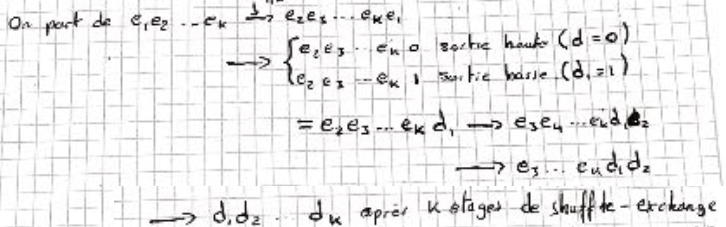 On part de e₁e₂ ... eₖ → e₂e₃ ... eₖe₁
→ { e₂e₃ ... eₖ 0 sortie haute (d₁=0)
e₂e₃ ... eₖ 1 sortie basse (d₁=1)
= e₂e₃ ... eₖ d₁ → e₃e₄ ... eₖd₁e₂
→ e₃ ... eₖd₁d₂
→ d₁d₂ .. dₖ après K étages de shuffle-exchange